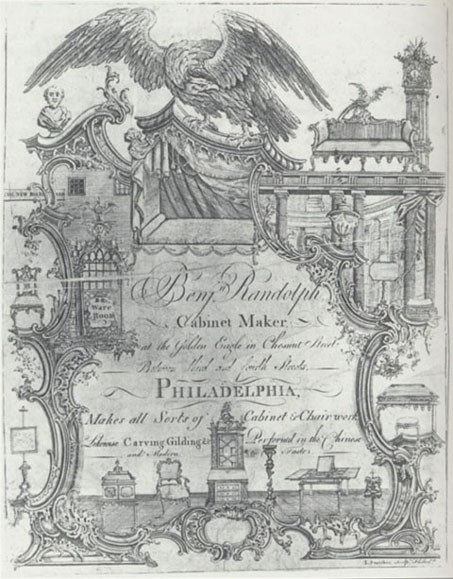 Benjn Randolph
Cabinet Maker
at the Golden Eagle in Chesnut Street
Between Third and Fourth Streets,
PHILADELPHIA,
Makes all Sorts of Cabinet & Chairwork
Likewise Carving Gilding &c Performed in the Chinese
and Modern Tastes
Ware
Room